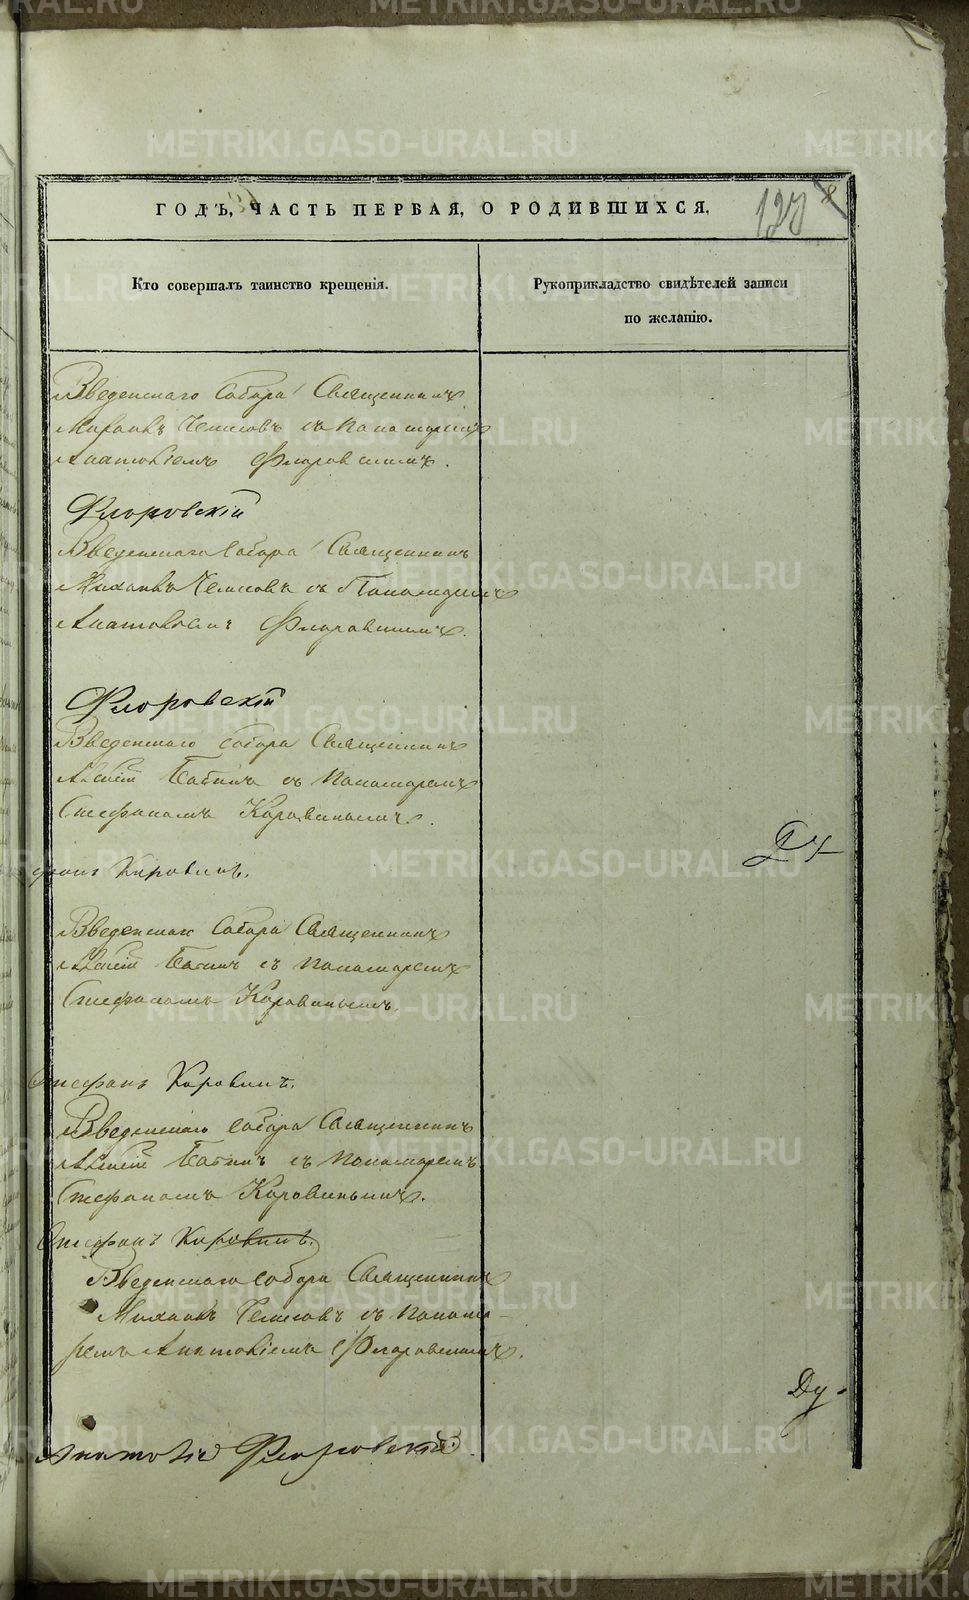 METRIKI.GASO-URAL.RU
ГОДЪ, ЧАСТЬ ПЕРВАЯ, О РОДИВШИХСЯ.
Кто совершалъ таинство крещенія.
Рукоприкладство свидѣтелей записи
по желанію.
Введенскаго Собора Священникъ
съ Пономаремъ
Анатоліемъ Флоровскимъ.
Флоровскій
Введенскаго Собора Священникъ
Михаилъ съ Пономаремъ
Анатоліемъ Флоровскимъ.
Флоровскій
Введенскаго Собора Священникъ
съ Пономаремъ
Стефаномъ Коровинымъ.
Коровинъ.
Введенскаго Собора Священникъ
съ Пономаремъ
Стефаномъ Коровинымъ.
Стефанъ Коровинъ.
Введенскаго Собора Священникъ
съ Пономаремъ
Стефаномъ Коровинымъ.
Стефанъ Коровинъ.
Введенскаго Собора Священникъ
Михаилъ съ Понома-
ремъ Анатоліемъ Флоровскимъ.
Анатолій Флоровскій